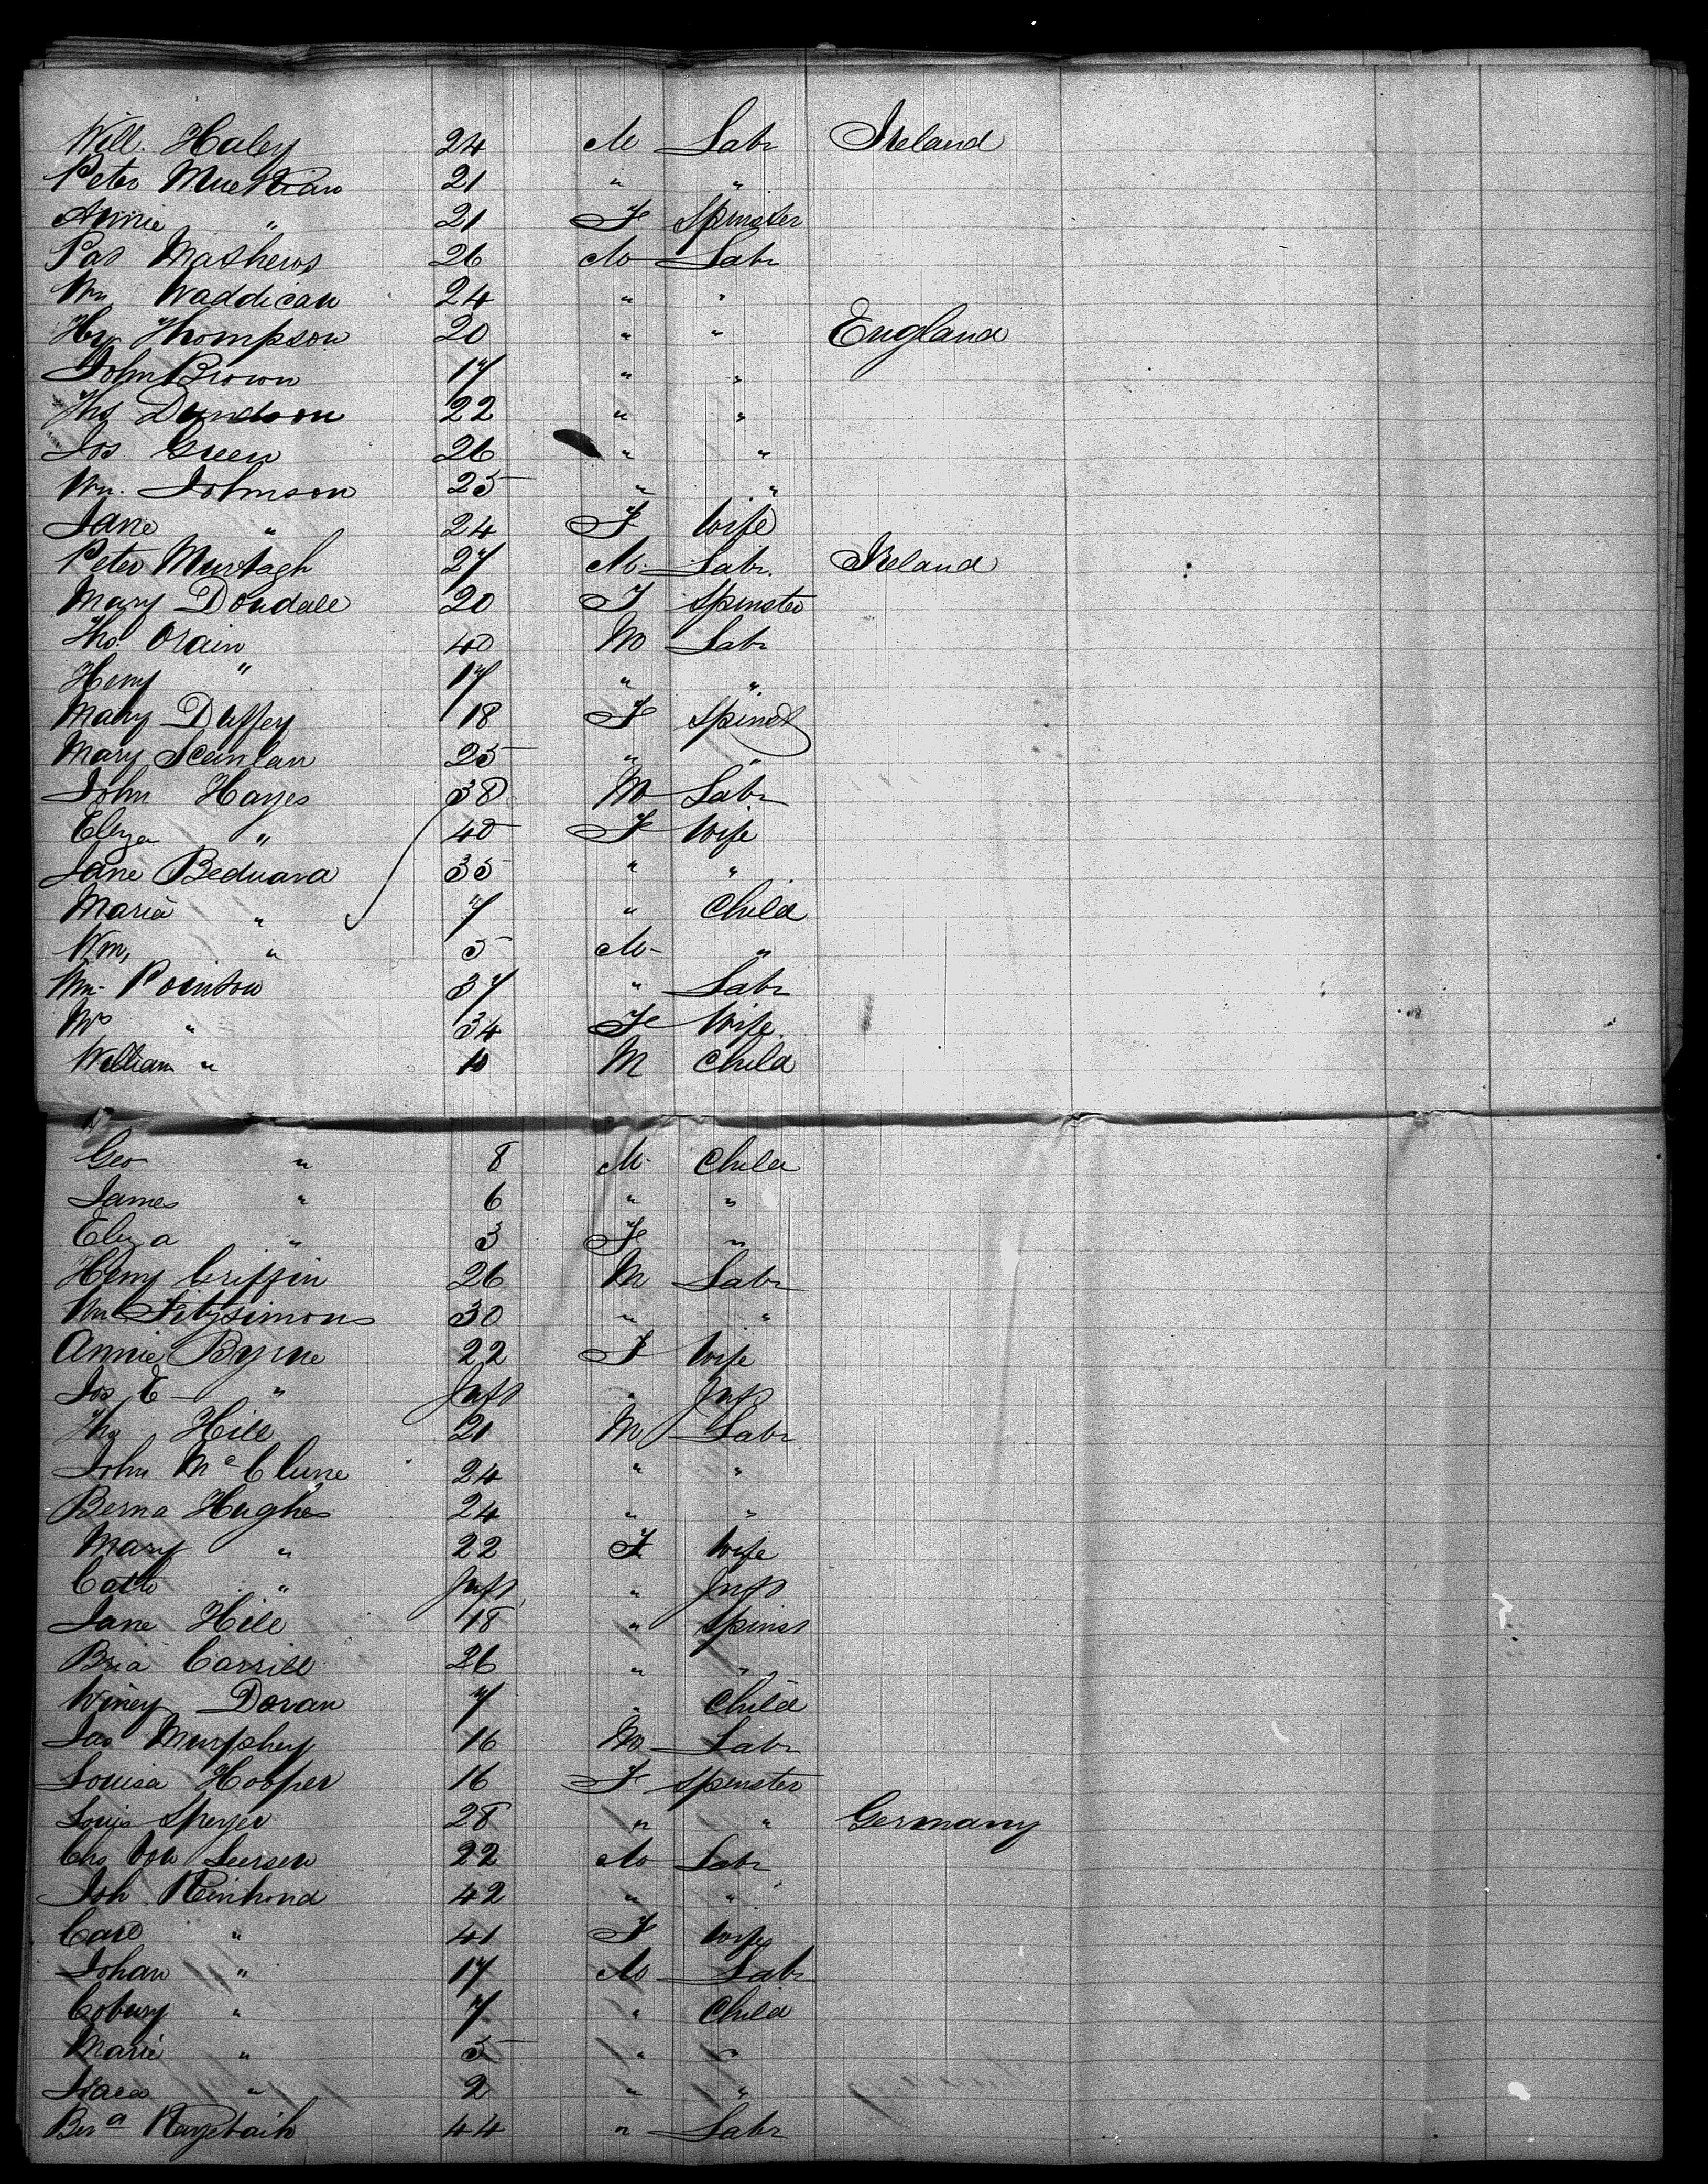 Will. Haley 24 M Labr Ireland
Peter 21 " "
Annie " 21 F Spinster
Pat Mathews 26 M Labr
Wm Waddican 24 " "
Hy Thompson 20 " " England
John Brown 17 " "
Ths 22 " "
Jos Green 26 " "
Wm. Johnson 25 " "
Jane " 24 F Wife
Peter Murtagh 27 M. Labr. Ireland
Mary Dondall 20 F Spinster
Ths. Orain 40 M Labr
Henry " 17 " "
Mary Duffey 18 F Spinst
Mary Scanlan 25 " "
John Hayes 38 M Labr
Eliza " 40 F Wife
Jane Beduara 35 " "
Maria " 7 " Child
Wm, " 5 M- "
Wm- Pointon 37 " Labr
Mrs " 34 F Wife.
William " 10 M Child
Geo " 8 M- Child
James " 6 " "
Eliza " 3 F "
Henry Griffin 26 M Labr
Wm Fitzsimons 30 " "
Annie Byrne 22 F Wife
Jos E " Inft " Inft
Ths Hill 21 M Labr
John McClune 24 " "
Berna Hughes 24 " "
Mary " 22 F Wife
Cath " Inft " Inft
Jane Hill 18 " Spinst
Bria Carrill 26 " "
Winey Doran 7 " Child
Jas Murphey 16 M Labr
Louisa Hooper 16 F Spinster
Louis Speyer 28 " " Germany
Chs Von Leersen 22 M Labr
Joh Reinhond 42 " "
Carl " 41 F Wife
Johan " 17 M Labr
Coburg " 7 " Child
Marie " 5 " "
" 2 " "
Bera 44 " Labr